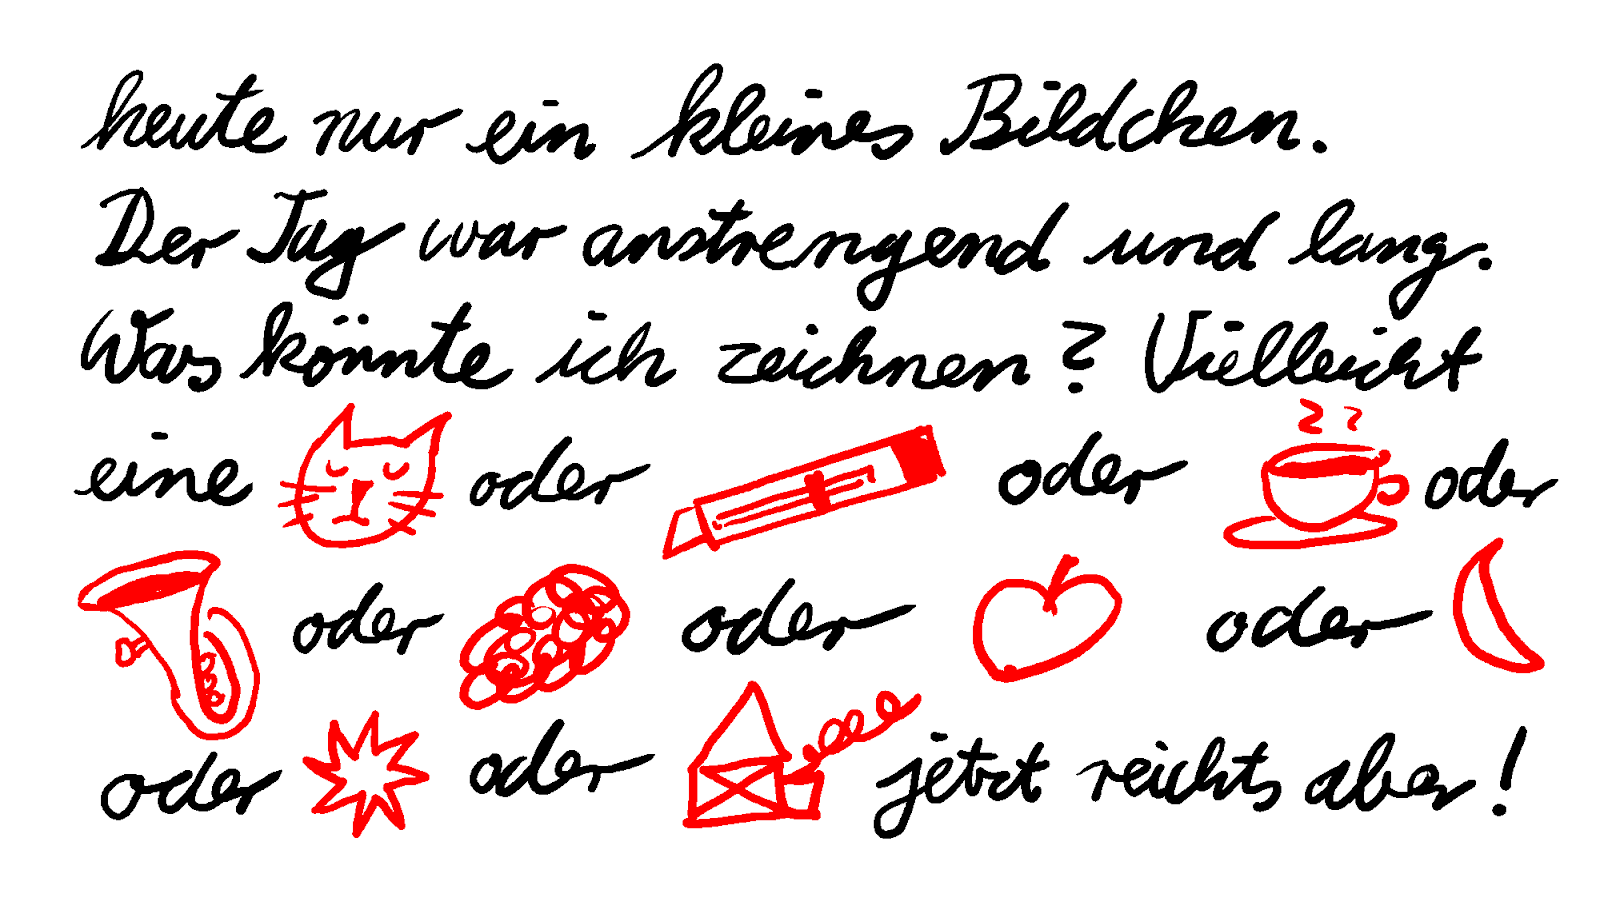 heute nur ein kleines Bildchen.
Der Tag war anstrengend und lang.
Was könnte ich zeichnen? Vielleicht
eine oder oder oder
oder oder oder
oder oder jetzt reichts aber!